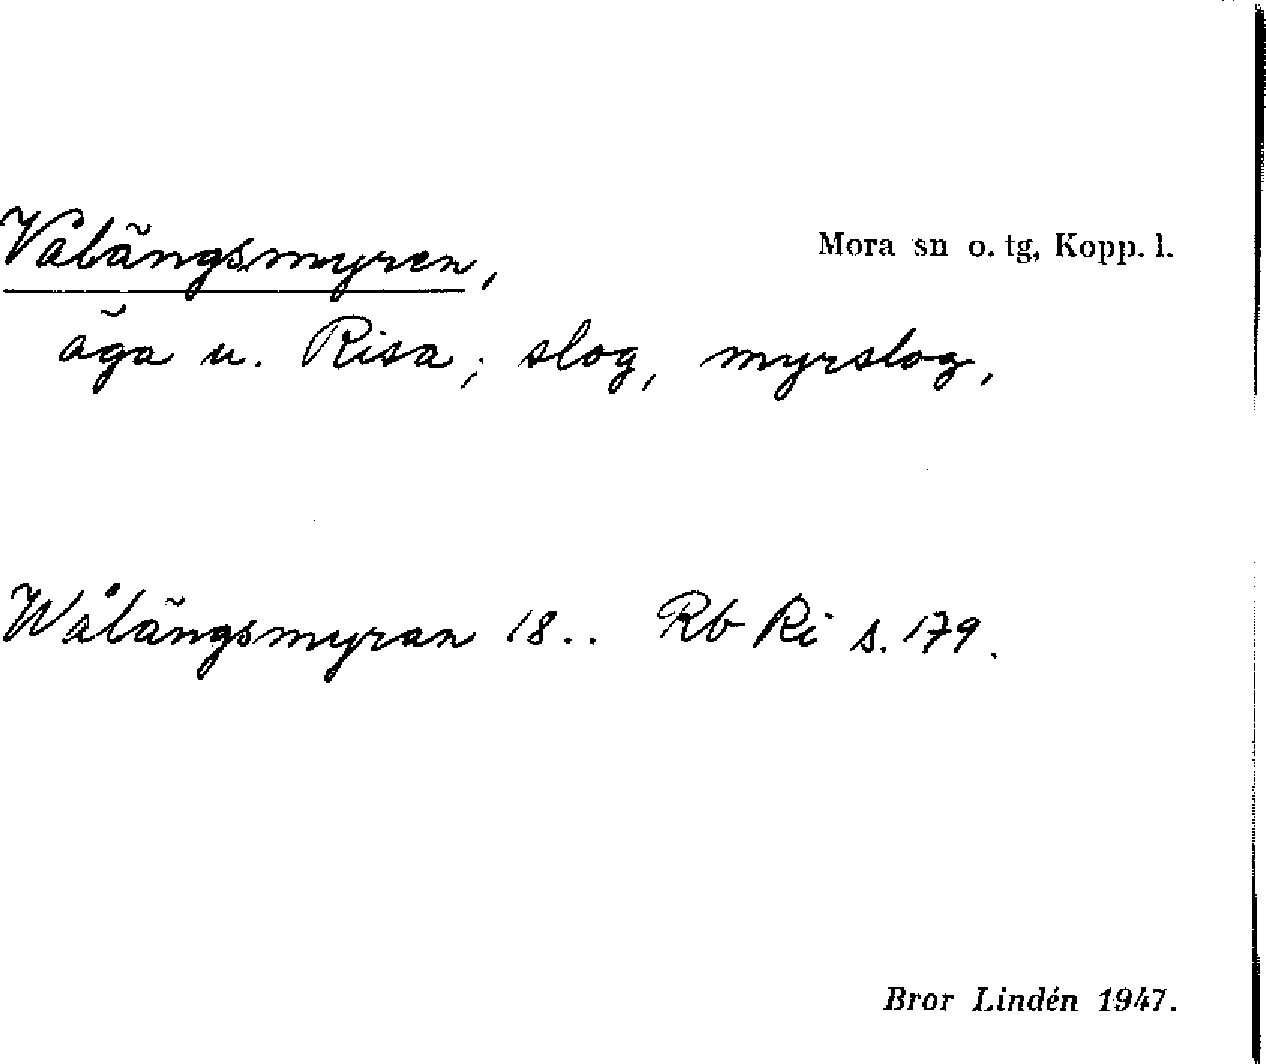 Vålängsmyren,
Mora sn o. tg, Kopp. l.
äga u. Risa; slog, myrslog,
Wålängsmyran 18.. Rb Ri s. 179.
Bror Lindén 1947.